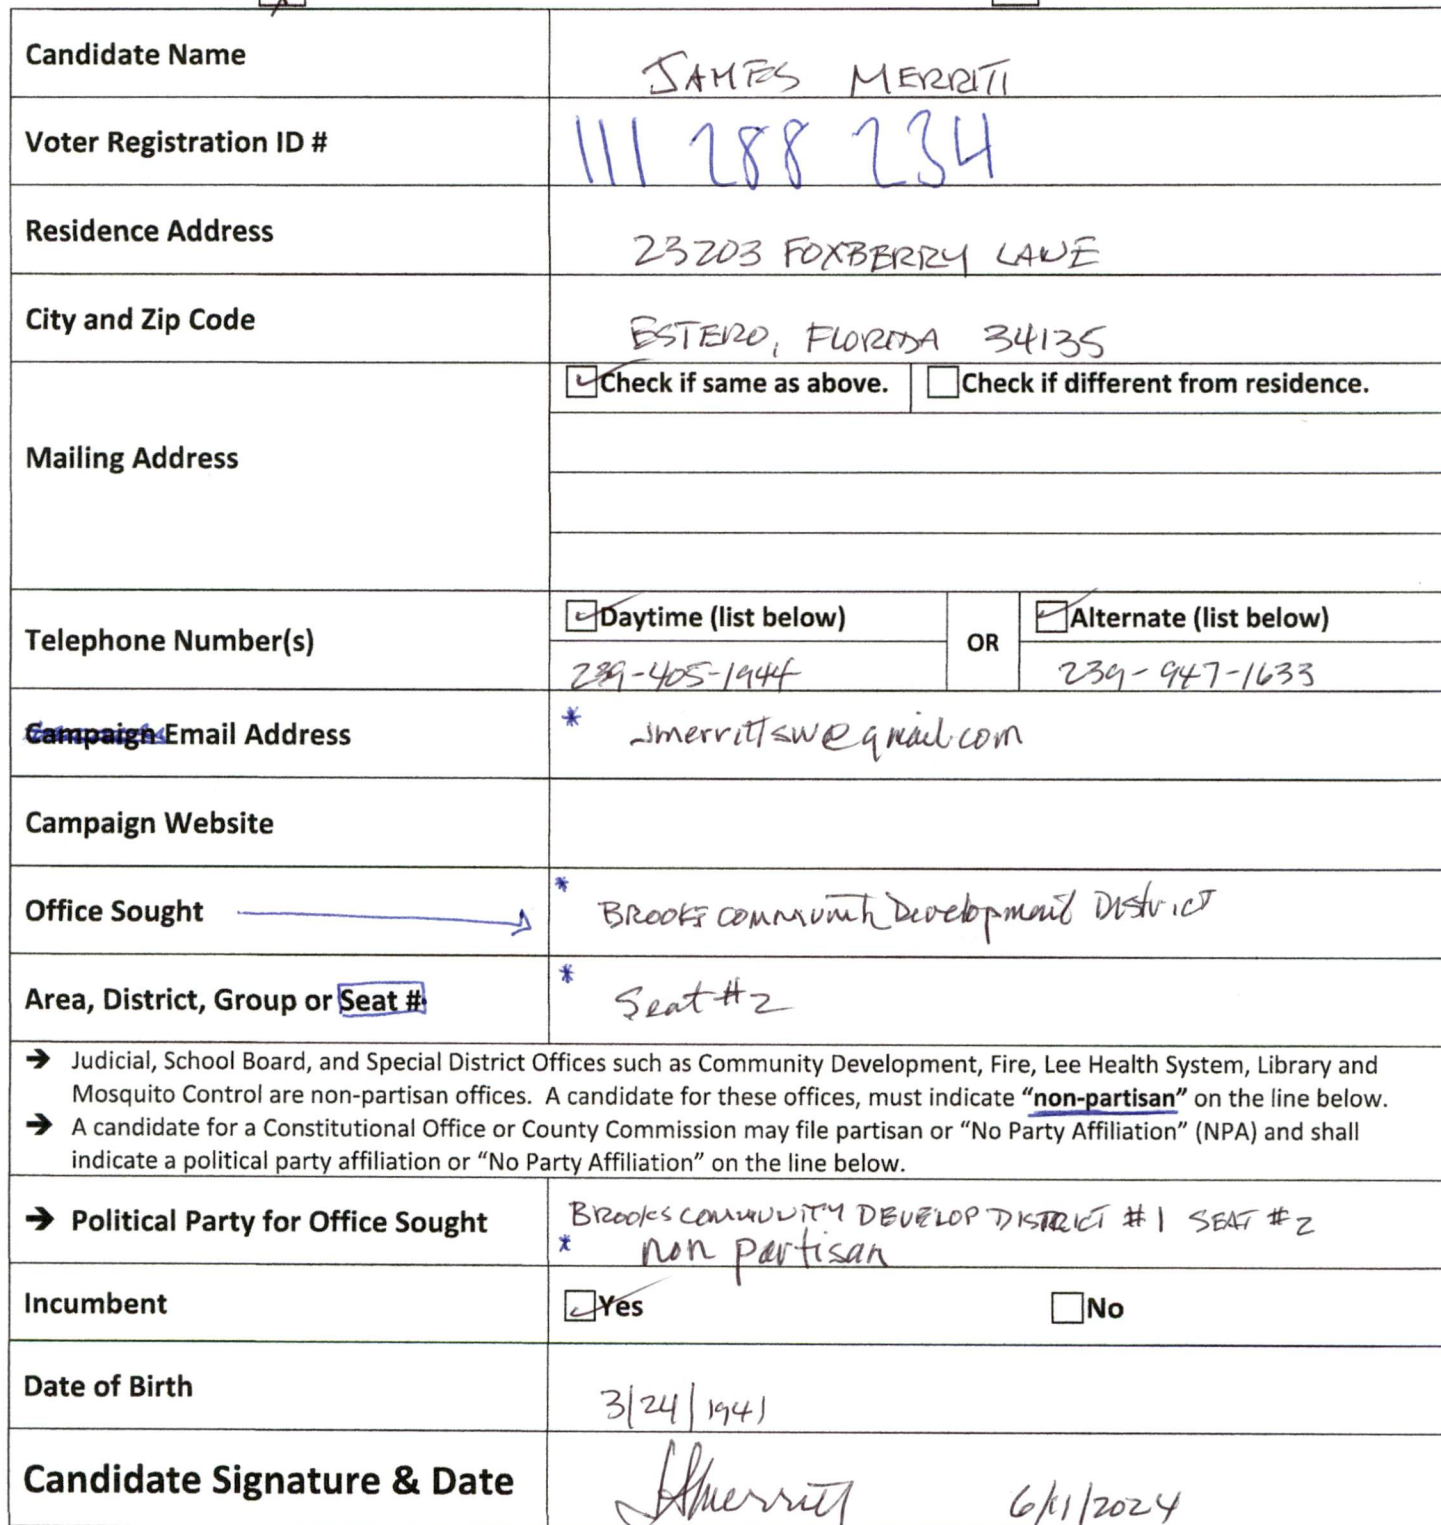 Candidate Name JAMES MERRITT
Voter Registration ID # 111 288 234
Residence Address 23203 FOXBERRY LANE
City and Zip Code ESTERO, FLORIDA 34135
Check if same as above. Check if different from residence.
Mailing Address
Daytime (list below) OR Alternate (list below)
Telephone Number(s) 239-405-1944 239-947-1633
Campaign Email Address * jmerrittsw@gmail.com
Campaign Website
Office Sought * BROOKS COMMUNITY Development District
Area, District, Group or Seat # * Seat #2
→ Judicial, School Board, and Special District Offices such as Community Development, Fire, Lee Health System, Library and
Mosquito Control are non-partisan offices. A candidate for these offices, must indicate “non-partisan” on the line below.
→ A candidate for a Constitutional Office or County Commission may file partisan or “No Party Affiliation” (NPA) and shall
indicate a political party affiliation or “No Party Affiliation” on the line below.
→ Political Party for Office Sought BROOKS COMMUNITY DEVELOP DISTRICT #1 SEAT #2
* non partisan
Incumbent Yes No
Date of Birth 3/24/1941
Candidate Signature & Date JAMerritt 6/11/2024